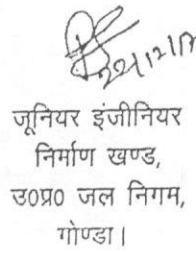 जूनियर इंजीनियर
निर्माण खण्ड,
उ०प्र० जल निगम,
गोण्डा।